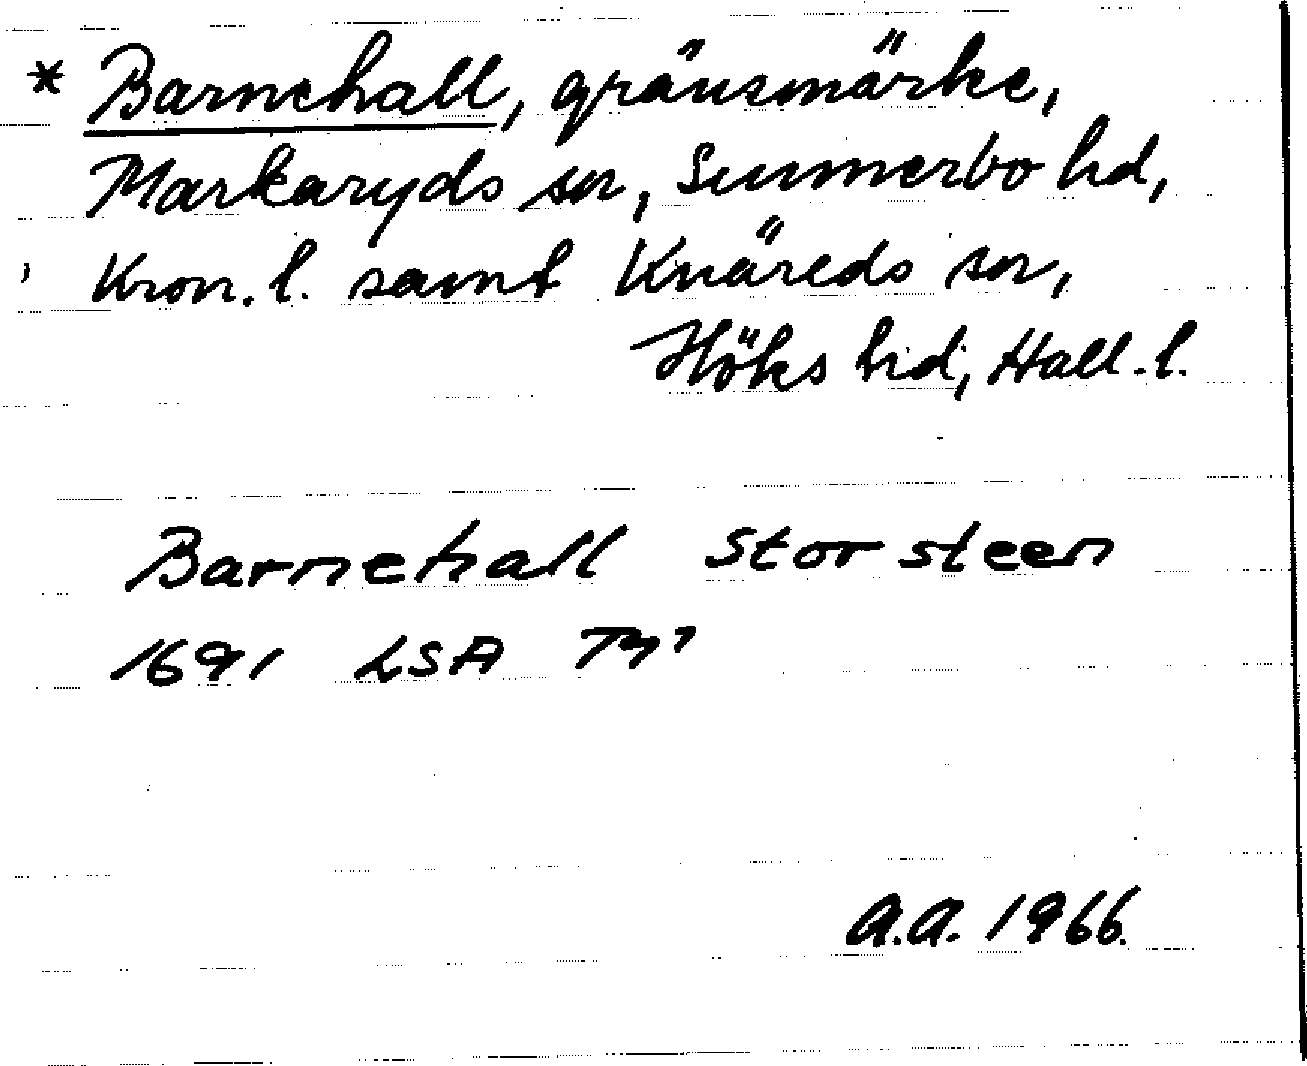 * Barnehall, gränsmärke,
Markaryds sn, Sunnerbo hd,
Kron. l. samt Knäreds sn,
Höks hd, Hall. l.
Barnehall Stor steen
1691 LSA
A.A. 1966.